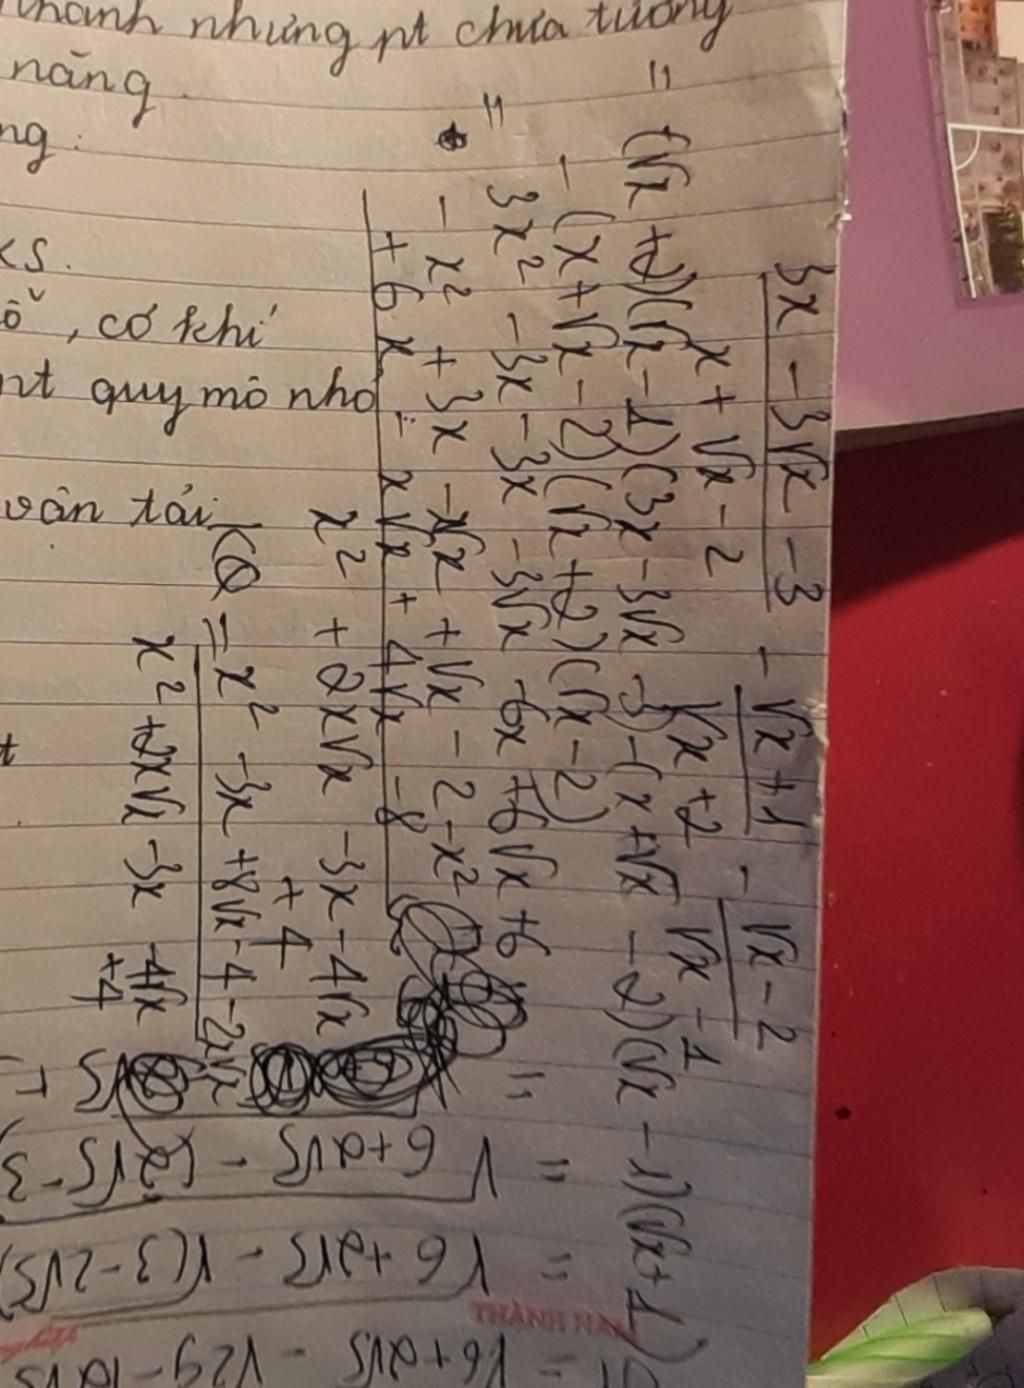 nhưng pt chưa tương
năng
ng:
KS.
ồ, cơ khí
nt quy mô nhỏ
vận tải
3x - 3√x - 3 / x + √x - 2 - √x + 1 / √x + 2 - √x - 2 / √x - 1
= (√x + 2)(√x - 1)(3x - 3√x - 3) - (x + √x - 2)(√x - 1)(√x + 1)
- (x + √x - 2)(√x + 2)(√x - 2)
= 3x² - 3x - 3x - 3√x - 6x + 6√x + 6
- x² + 3x - x√x + √x - 2 - x²
+ 6x - x√x + 4√x - 8
x² + 2x√x - 3x - 4√x
+ 4
KQ = x² - 3x + 8√x - 4 - 2x√x
x² + 2x√x - 3x - 4√x
+ 4
= √6+2√5 - √29-12√5
= √6+2√5 - √(3-2√5)
= √6+2√5 - (2√5-3
=
THÀNH NAM